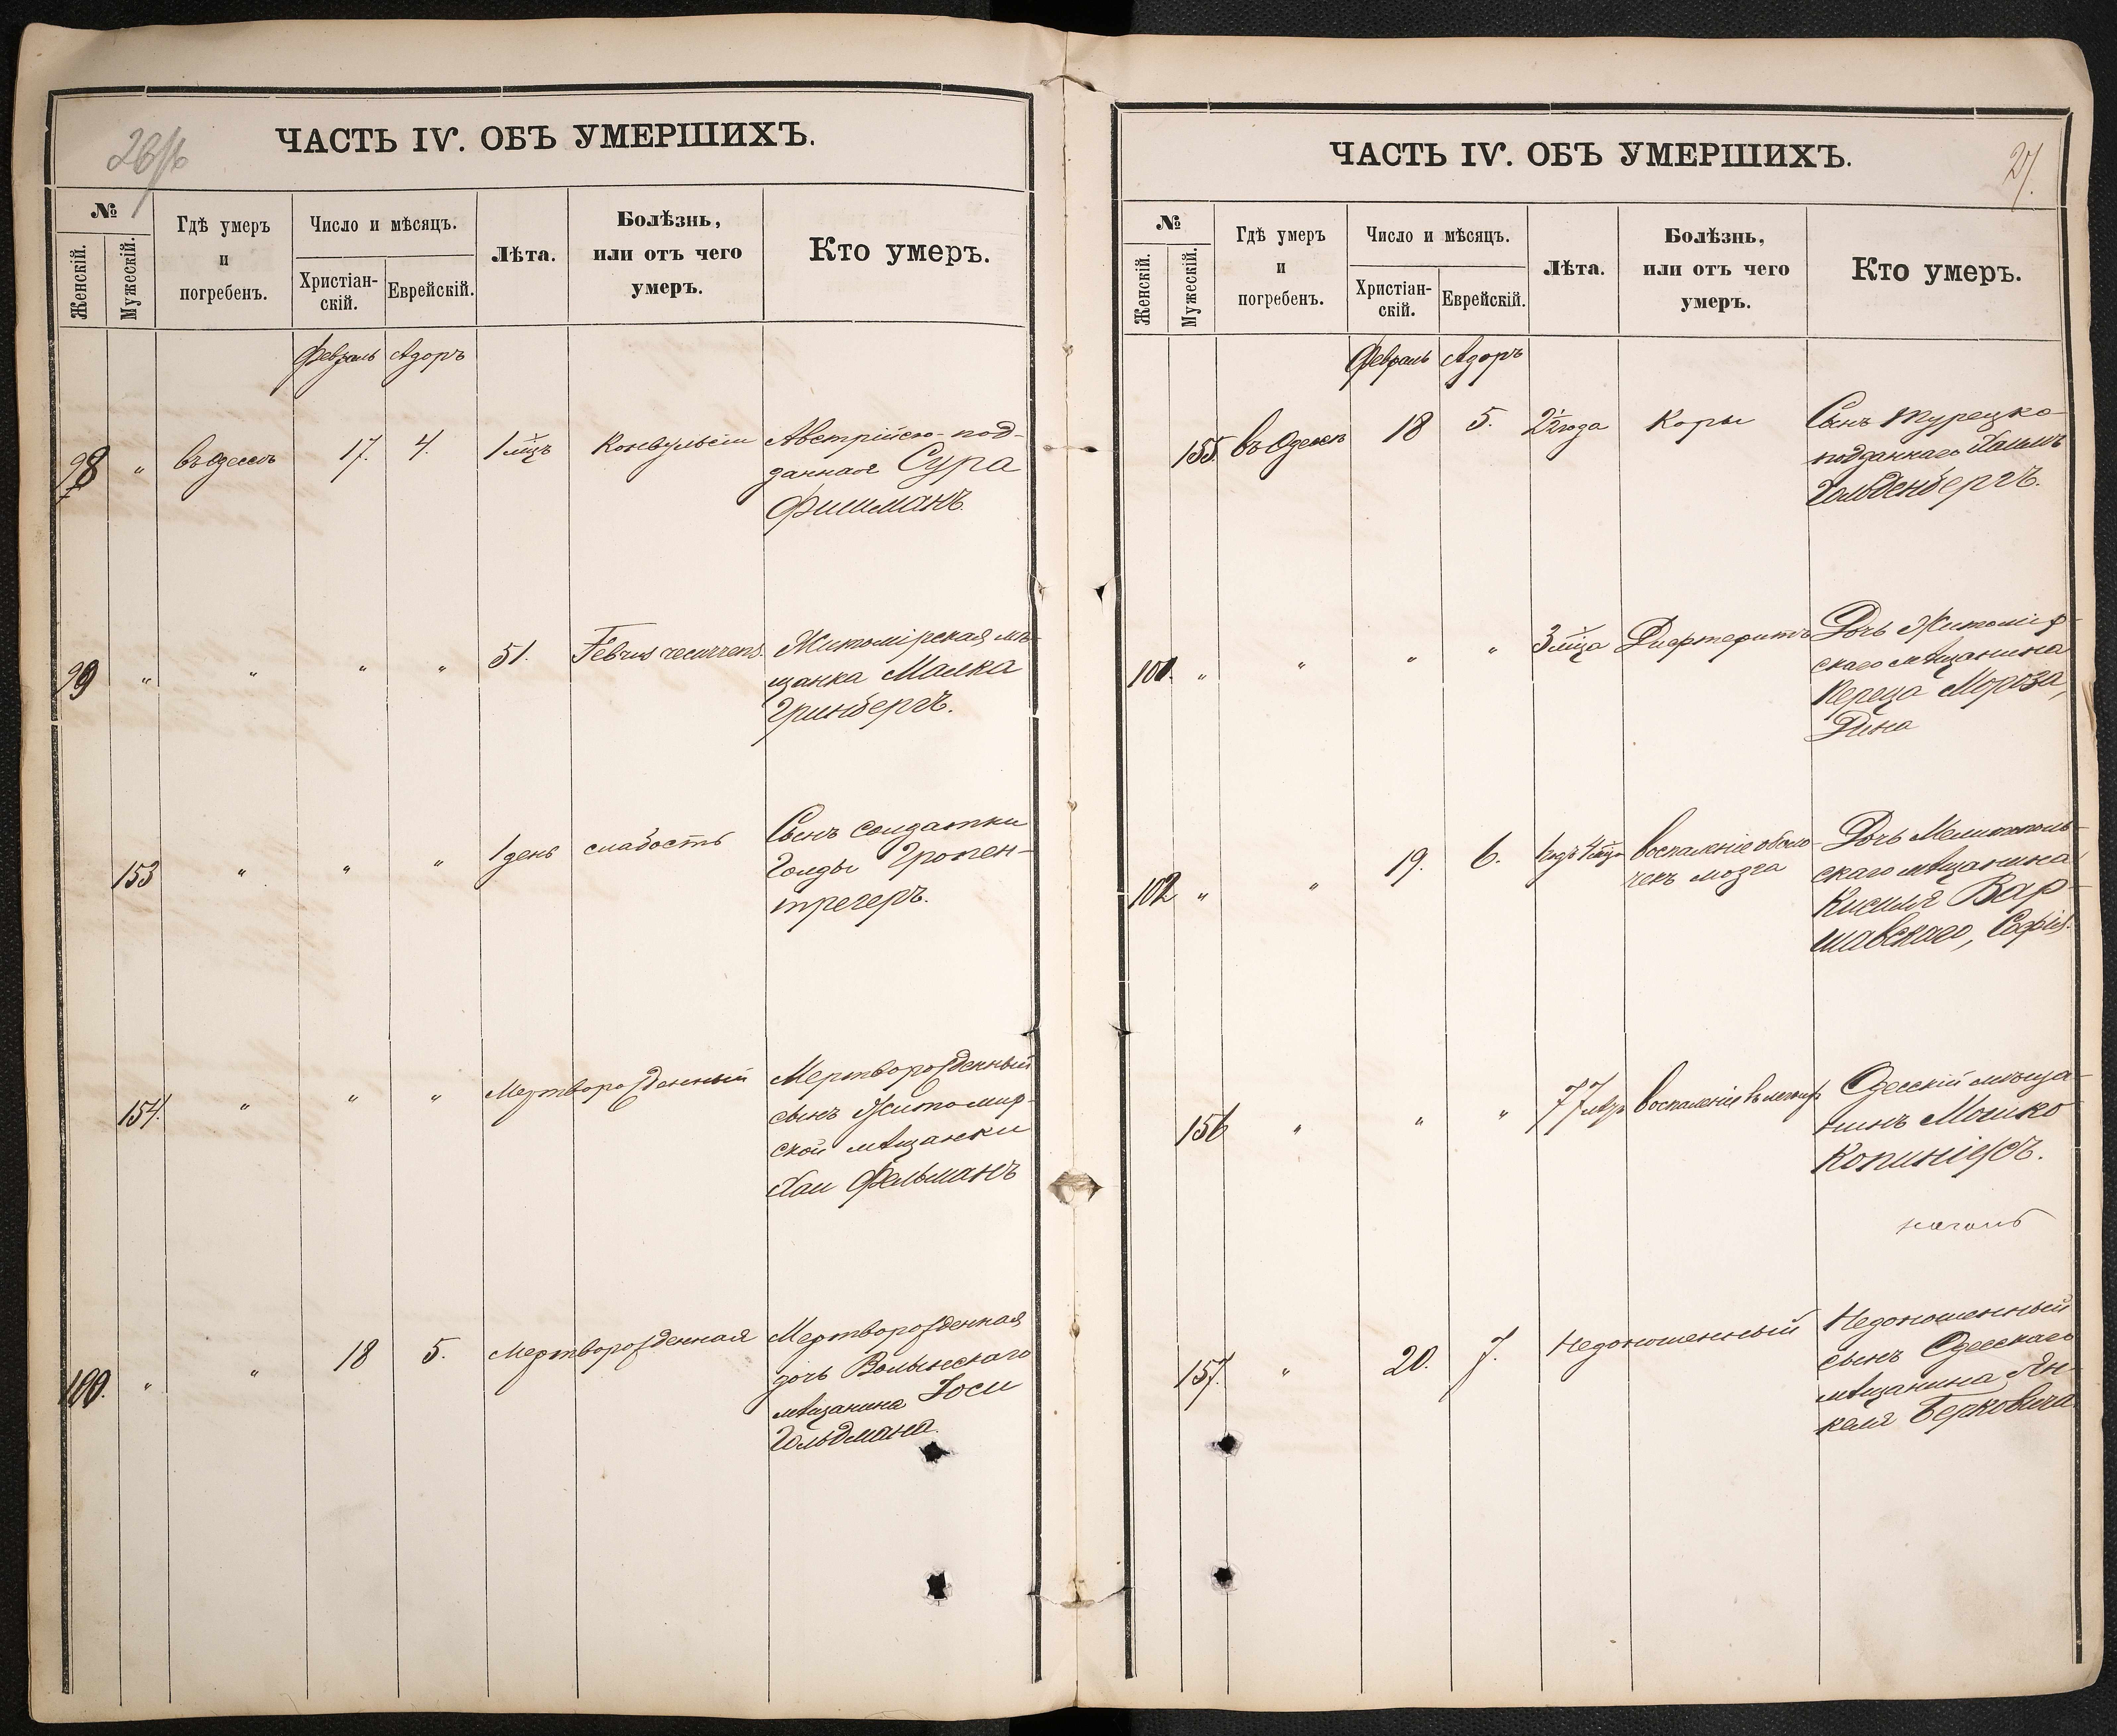 ЧАСТЬ IV. ОБЪ УМЕРШИХЪ.
№
Женскій.
Мужескій.
Гдѣ умеръ
и
погребенъ.
Число и мѣсяцъ.
Христіан-
скій.
Еврейскій.
Лѣта.
Болѣзнь,
или отъ чего
умеръ.
Кто умеръ.
Февраль Адоръ
98 " въ Одессѣ 17. 4. 1 мцъ Конвульсіи Австрійско-под-
данная Сура
Фишманъ.
99 " " " " 51. Febris recurrens. Житомірская мѣ-
щанка Малка
Гринбергъ.
153 " " " 1 день слабость Сынъ солдатки
Голды Гропен-
трегеръ.
154. " " " Мертворожденный Мертворожденный
сынъ Житомир-
ской мѣщанки
Хаи Фельманъ
100. " " 18 5. Мертворожденная Мертворожденная
дочь Волынскаго
мѣщанина Іоси
Гольдмана.
ЧАСТЬ IV. ОБЪ УМЕРШИХЪ.
27.
№
Женскій.
Мужескій.
Гдѣ умеръ
и
погребенъ.
Число и мѣсяцъ.
Христіан-
скій.
Еврейскій.
Лѣта.
Болѣзнь,
или отъ чего
умеръ.
Кто умеръ.
Февраль Адоръ
155 въ Одессѣ 18 5. 2½ года Коры Сынъ турецко-
подданнаго
Гольденбергъ.
101. " " " " 3 мца Дифтеритъ Дочь Житомір-
скаго мѣщанина
Переца Мороза,
Дина
102 " " 19. 6. 1 годъ 4 мца воспаленіе оболо-
чекъ мозга Дочь Мелитополь-
скаго мѣщанина
Кисиля Вар-
шавскаго, Софія.
156 " " " 77 лѣтъ воспаленіе въ легкихъ Одесскій мѣща-
нинъ Мошко
Копиніеръ.
157. " 20. 7. Недоношенный Недоношенный
сынъ Одесскаго
мѣщанина Ян-
келя Берковича